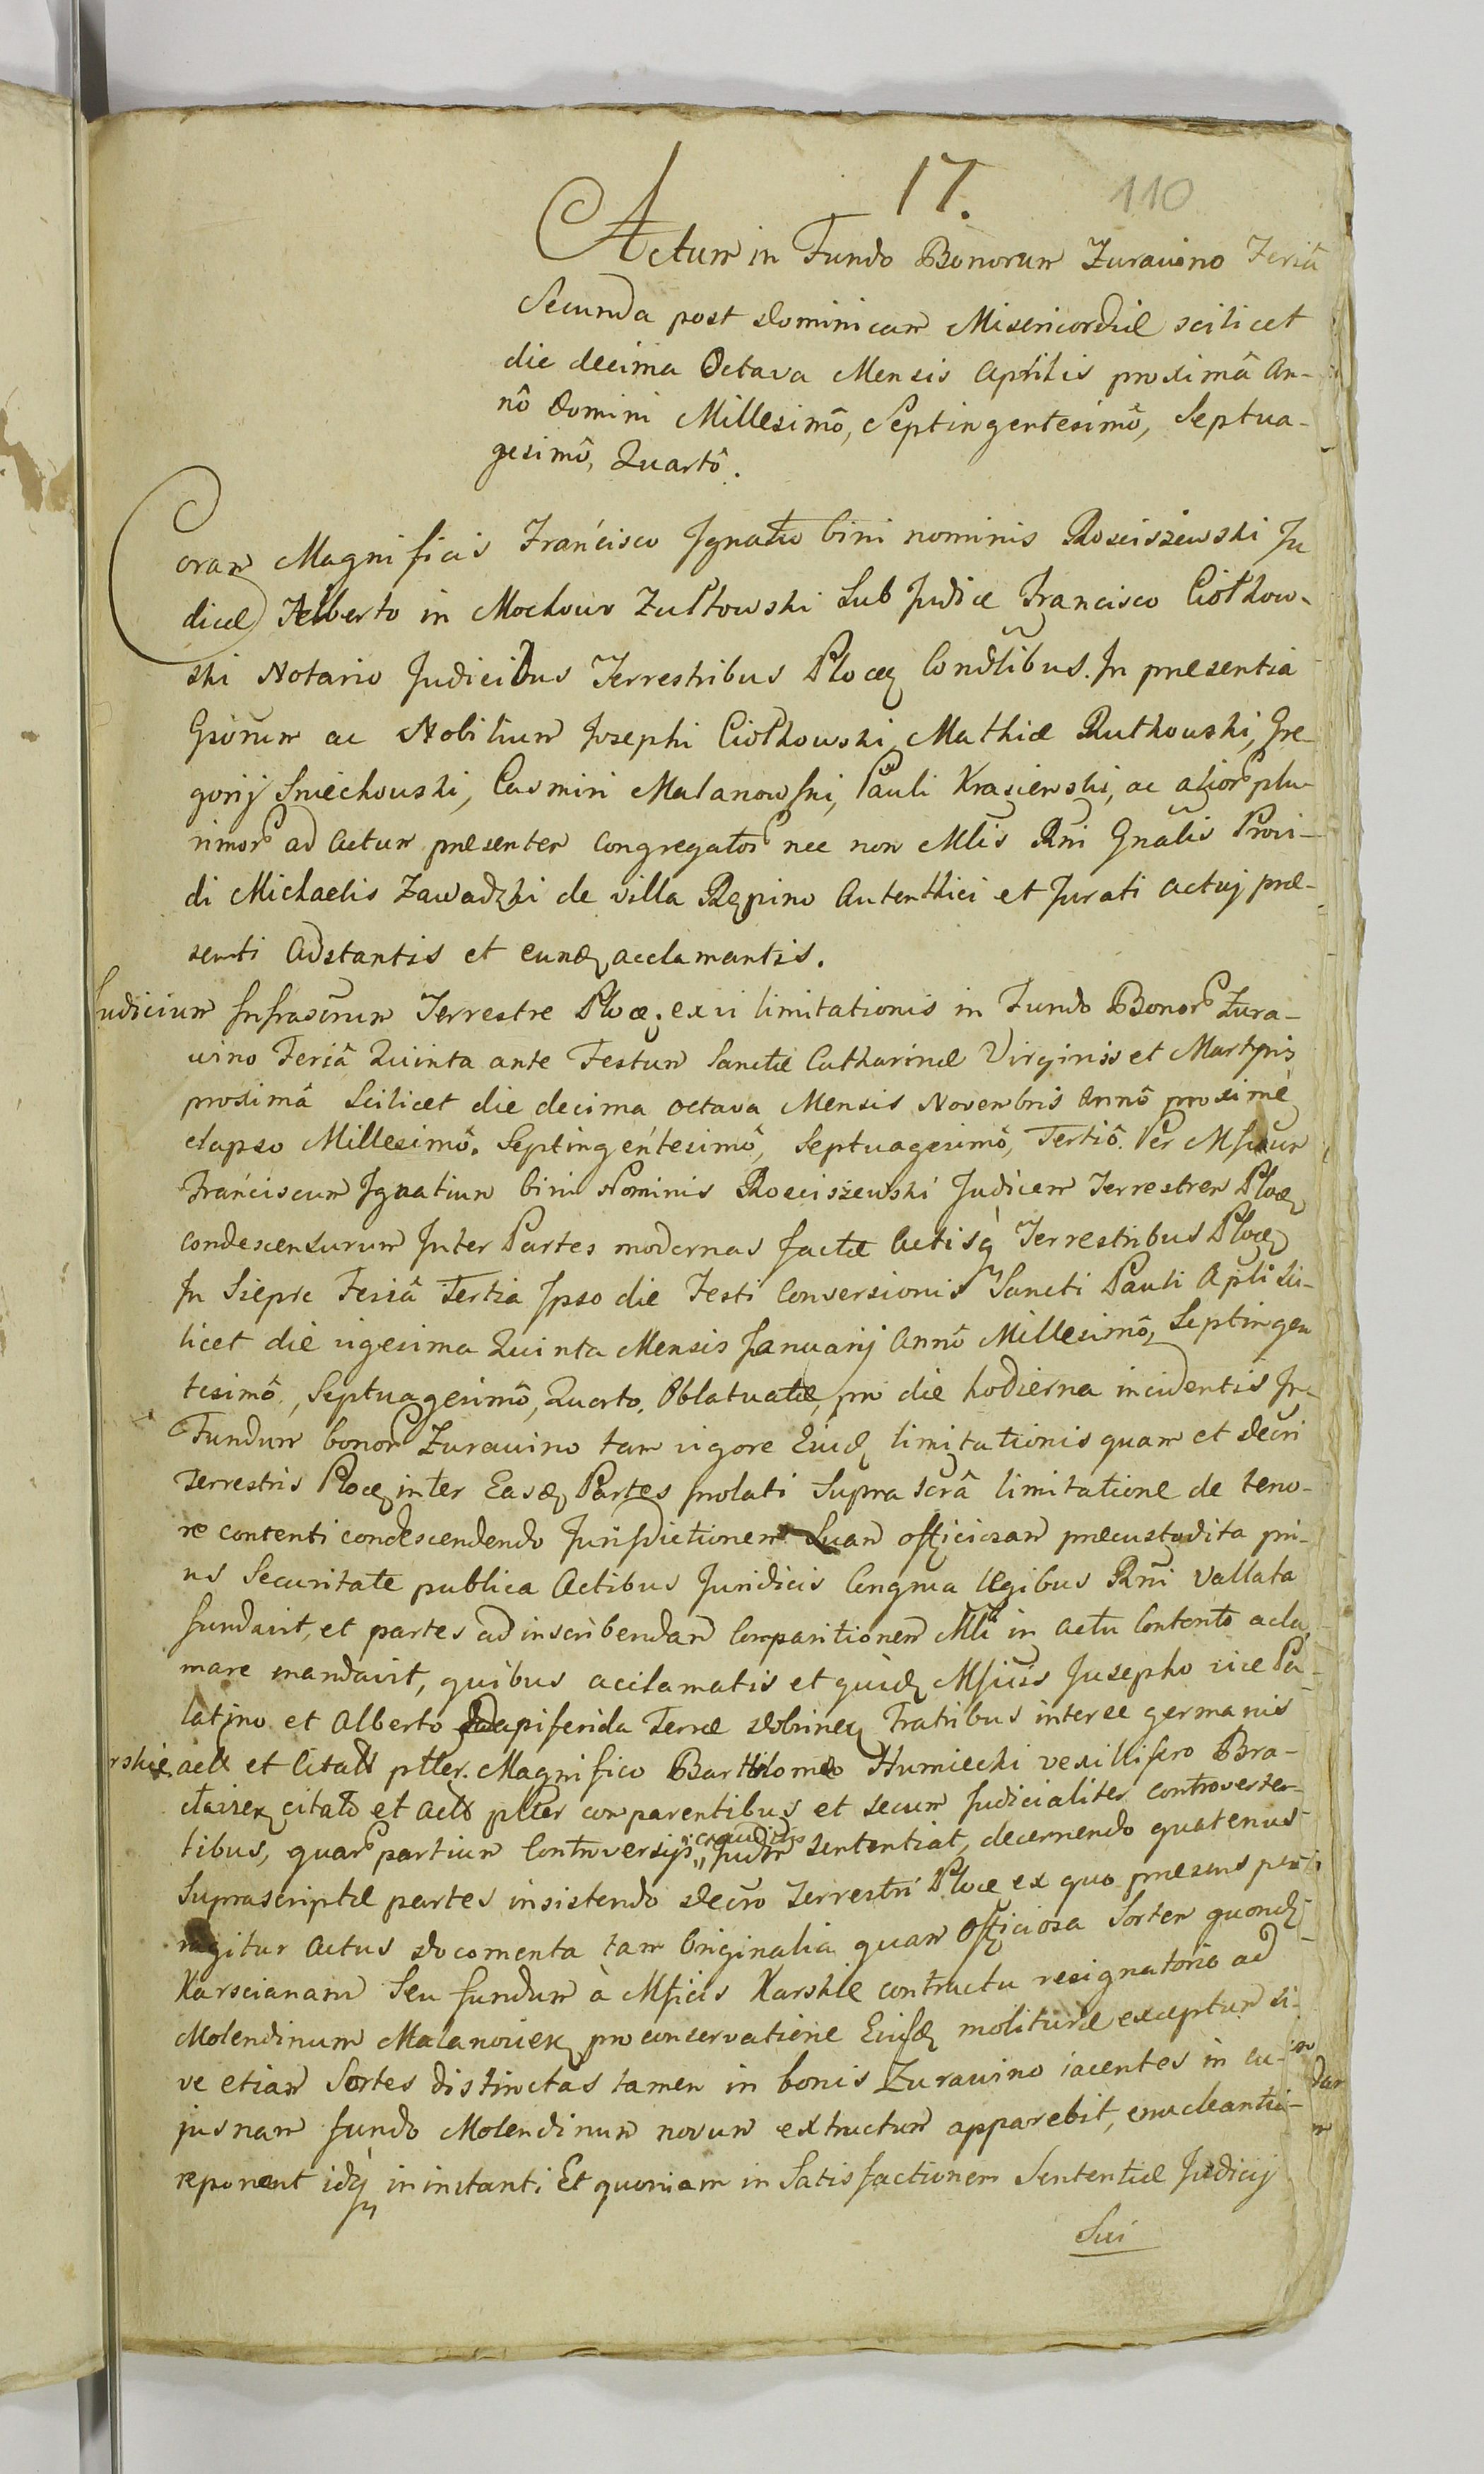 17. 110
Actum in Fundo Bonorum Zurawino Feriâ
Secunda post Dominicam Misericordiæ scilicet
die decima Octava Mensis Aprilis proximâ An-
nô Domini Millesimô, Septingentesimô, Septua-
gesimô, Quartô.
Coram Magnificis Francisco Ignatio bini nominis Rosciszewski Ju
dice Alberto in Mochowo Zułtowski Sub Judice Francisco Ciołkow-
ski Notario Judicibus Terrestribus Plocen Condlibus. In presentia
Gsorum ac Nobilium Josephi Ciołkowski, Mathiæ Rutkowski, Gre-
gorij Sniechowski, Casmiri Malanowski, Pauli Krasiewski, ac alior plu-
rimor ad actum præsentem Congregator nec non Mlis Rni Gnalis Provi-
di Michaelis Zawadzki de villa Rępino Autenthici et Jurati actuj præ-
senti Adstantis et eundem acclamantis.
Judicium Infrascrum Terrestre Ploc: ex vi limitationis in Fundo Bonor Zura-
wino Feriâ Quinta ante Festum Sanctæ Catharinæ Virginis et Martyris
proximâ Scilicet die decima octava Mensis Novembris Annô proxime
elapso Millesimô. Septingentesimô, Septuagesimô, Tertiô. Per Mficum
Franciscum Ignatium bini Nominis Rosciszewski Judicem Terrestrem Plocen
condescensurum Inter Partes modernas factæ Actisq Terrestribus Plocen
In Siepre Feriâ Tertia Ipso die Festi Conversionis Sancti Pauli Apli Sci-
licet die vigesima Quinta Mensis Januarij Annô Millesimô, Septingen
tesimô, Septuagesimô, Quarto, Oblatuatæ, pro die hodierna incidentis In
Fundum bonor Zurawino tam vigore Eiusd limitationis quam et Decri
Terrestris Plocen inter Easd Partes prolati Supra scrâ limitatione de teno-
re contenti condescendendo Jurisdictionem Suam officiosam præcustodita pri-
us Securitate publica Actibus Juridicis Congrua legibus Rni vallata
fundavit, et partes ad inscribendam Comparitionem Mli in actu Contento acla-
mare mandavit, quibus acclamatis et quid Mficis Josepho vice Pa-
latino et Alberto Dapiferida Terræ Dobrinen Fratribus inter se germanis
rskie act et Citatt ptter. Magnifico Bartholomeo Humiecki vexillifero Bra-
claviern citato et act ptter comparentibus et secum Judicialiter controverten
tibus, quar partium Controversijs exauditis sententiat, decernendo quatenus
Suprascriptæ partes insistendo Decro Terrestri Ploc ex quo præsens pera-
gitur Actus documenta tam Originalia quam Officiosa Sortem quond
Karscianam Seu fundum à Mficis Karskie contractu resignatorio ad
Molendinum Malanowiek pro conservatione Eiusd molituræ exceptum si-
ve etiam Sortes distinctas tamen in bonis Zurawino iacentes in cu-
jusnam fundo Molendinum novum extructum apparebit, enucleantia
reponent idq in instanti Et quoniam in Satisfactionem Sententiæ Judicij
Sui